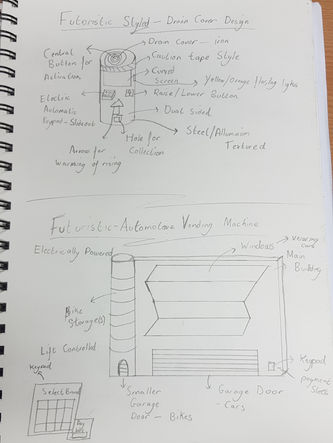 Futuristic Styled - Drain Cover Design
Central
Button for
Activation
Drain cover - iron
Caution tape Style
Curved
Screen
Yellow/Orange flashing lights
Raise/Lower Button
Electric
Automatic
Keypad - Slideout
Dual sided
Steel/Alluminium
Textured
Hole for
Collection
Arrow for
warning of rising
Futuristic - Automotive Vending Machine
Electrically Powered
Windows
Main
Building
Bike
Storage(s)
Lift Controlled
Keypad
Select Brand
Pay
Keypad
payment
Slots
Smaller
Garage
Door - Bikes
Garage Door
- Cars